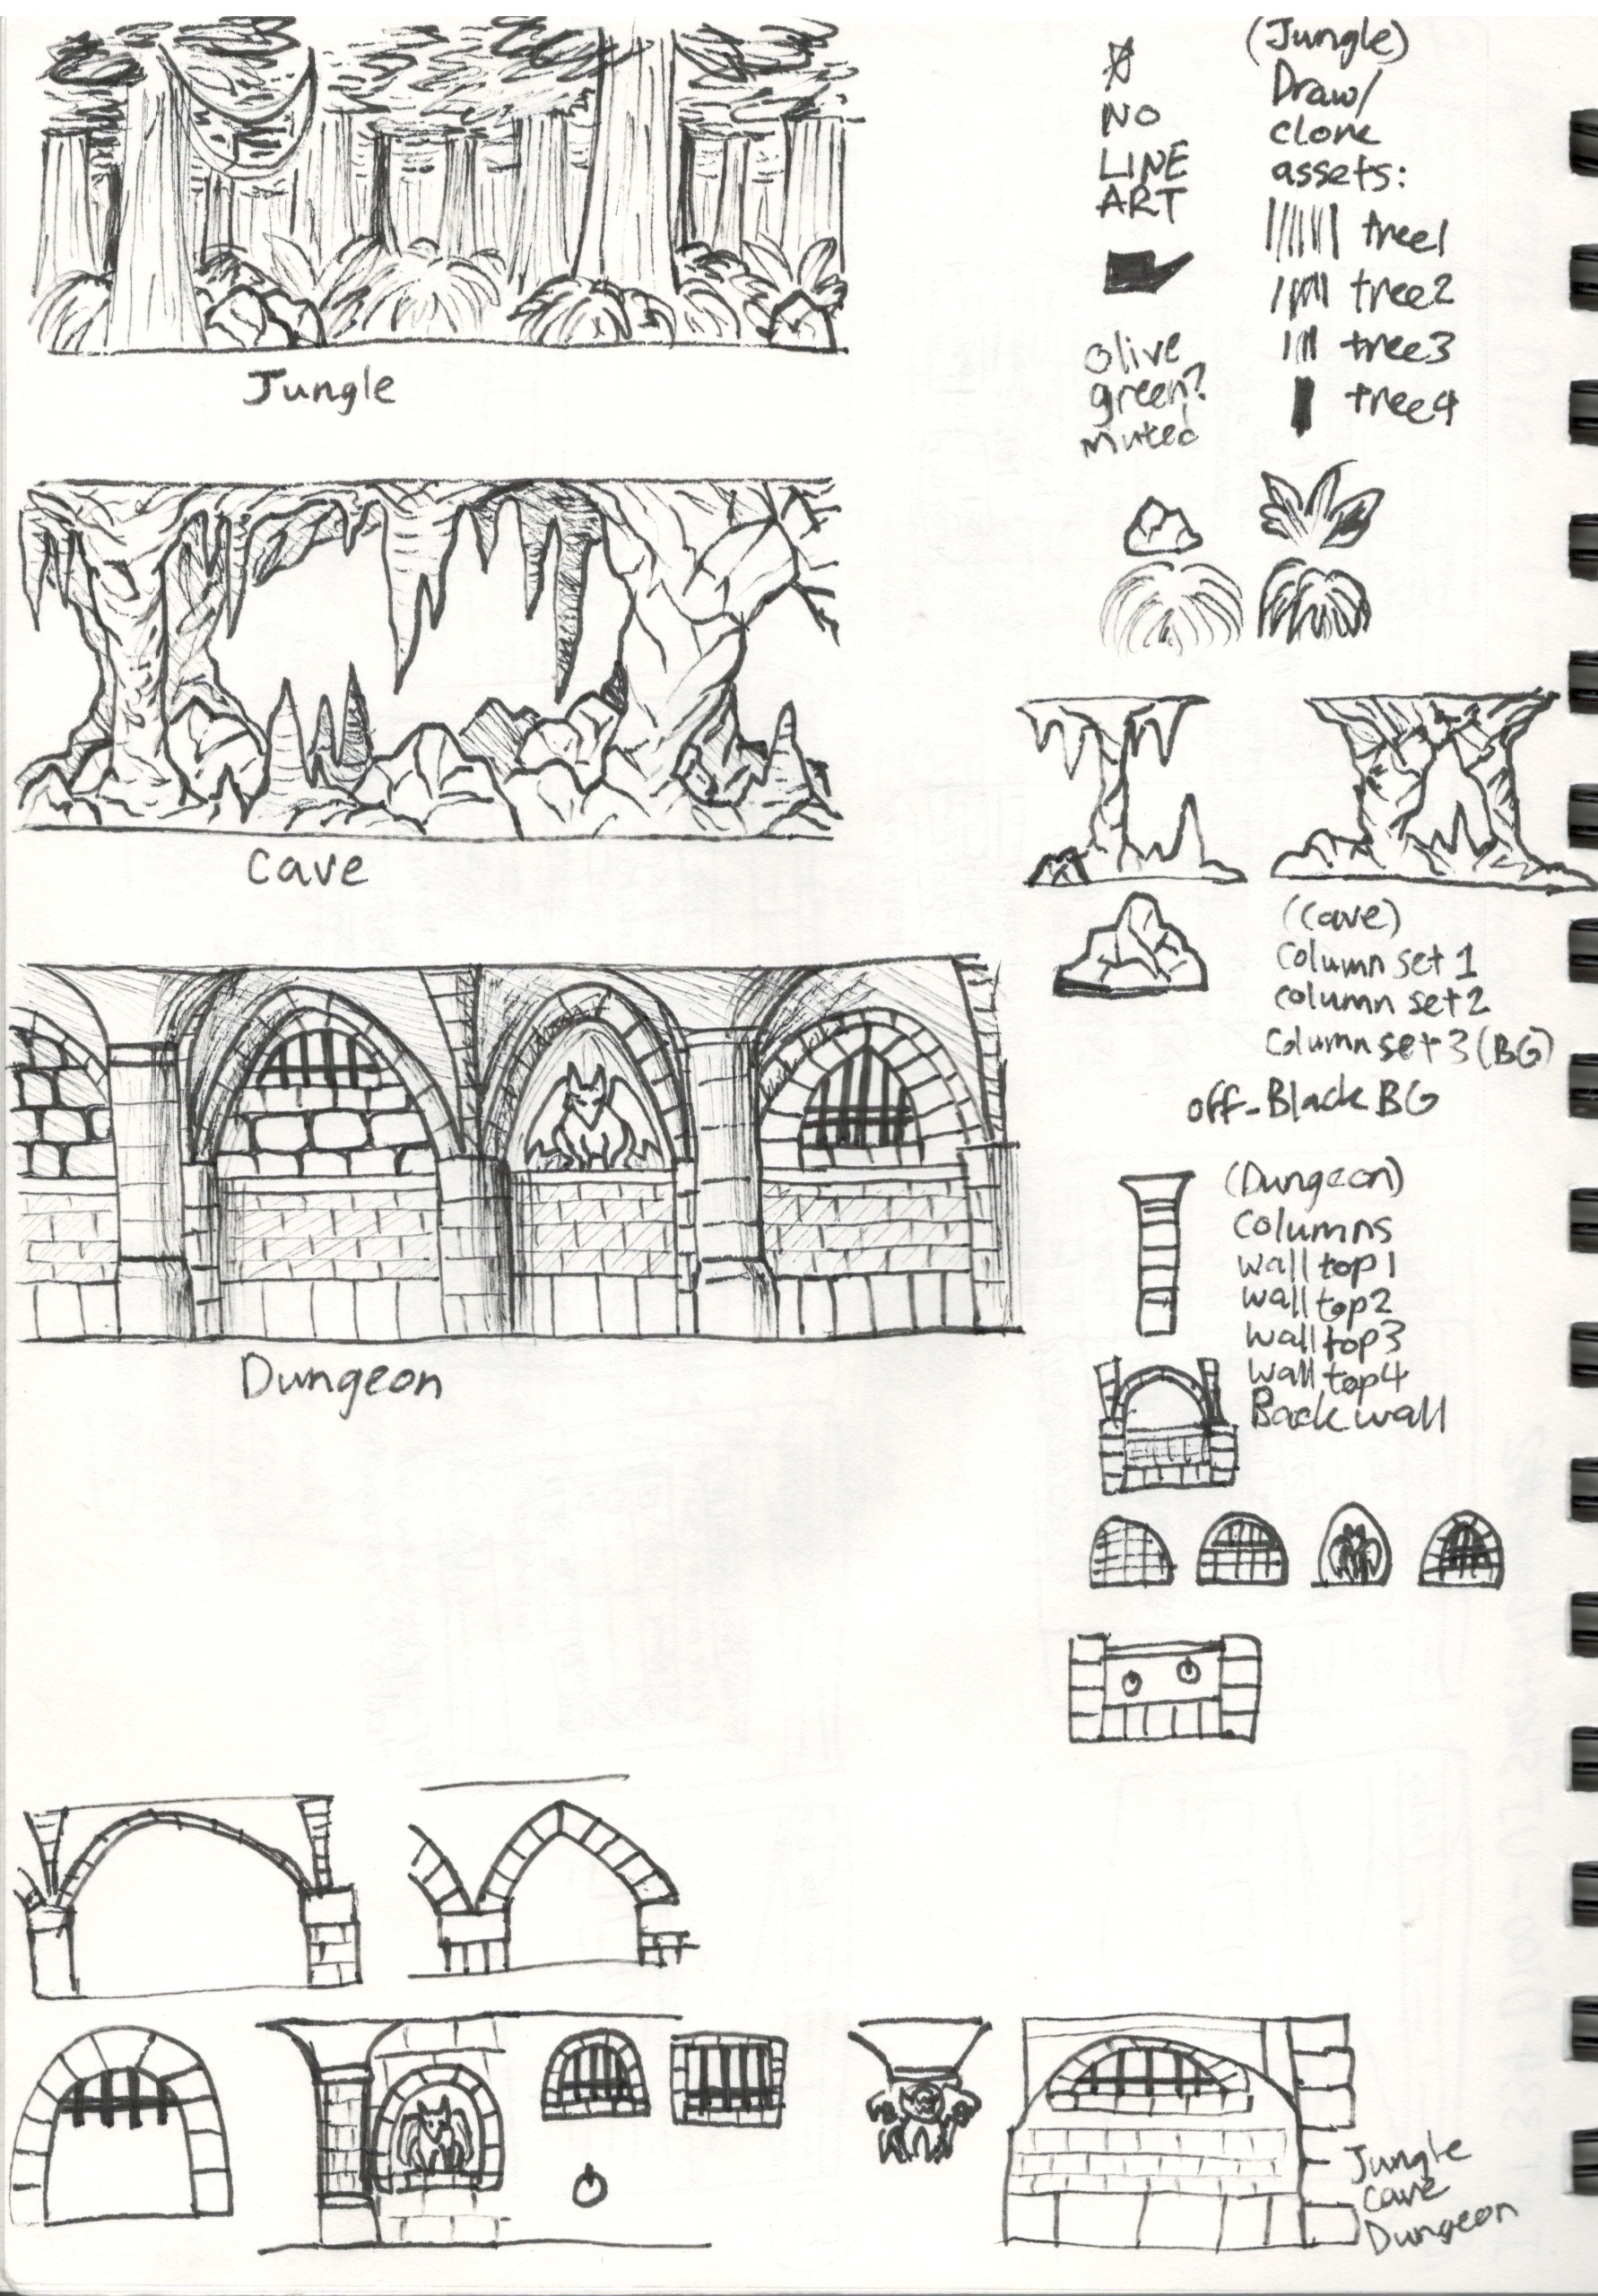 Jungle
NO
LINE
ART
olive
green?
muted
(Jungle)
Draw/
clone
assets:
tree1
tree2
tree3
tree4
Cave
(Cave)
Column set 1
column set 2
Column set 3 (BG)
off-Black BG
Dungeon
(Dungeon)
Columns
wall top 1
wall top 2
wall top 3
wall top 4
Back wall
Jungle
Cave
Dungeon